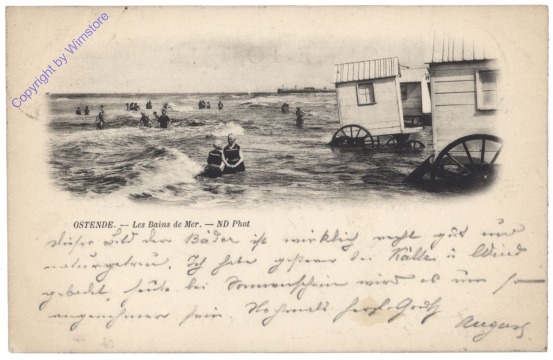 Copyright by Wimstore
OSTENDE. — Les Bains de Mer. — ND Phot
Dieses Bild der Bäder ist wirklich recht gut und
naturgetreu. Ich habe gestern bei Kälte u Wind
gebadet, heute bei Sonnenschein wird es um so
angenehmer sein. Nochmals herzl. Gruß
August